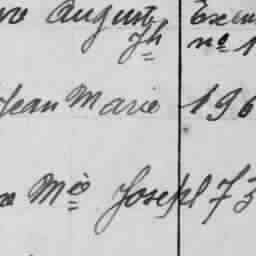 Auguste
Jh nº 1
Jean Marie 196
Mie Joseph 73